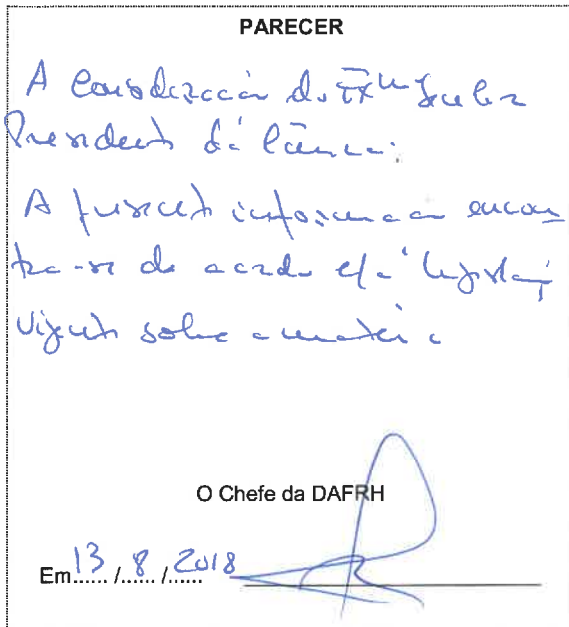 PARECER
A consideração do Exmº Senhor
Presidente da Câmara.
A presente informação encon
tra-se de acordo c/a legislaç
vigente sobre a matéria
O Chefe da DAFRH
Em 13 / 8 / 2018